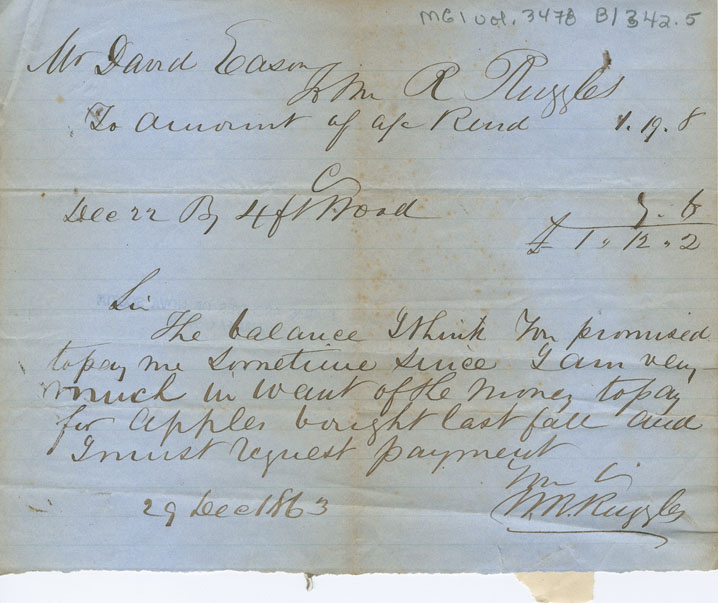 MG1 vol. 3478 B1342.5
Mr David Eason
To Wm R Ruggles
To Amount of a/c Rend 1. 19. 8
C
Dec 22 By 4 ft Wood 7. 6
£ 1 " 12 " 2
Sir
The balance I think You promised
to pay me sometime since I am very
much in want of the money to pay
for Apples bought last fall and
I must request payment
WR Ruggles
29 Dec 1863